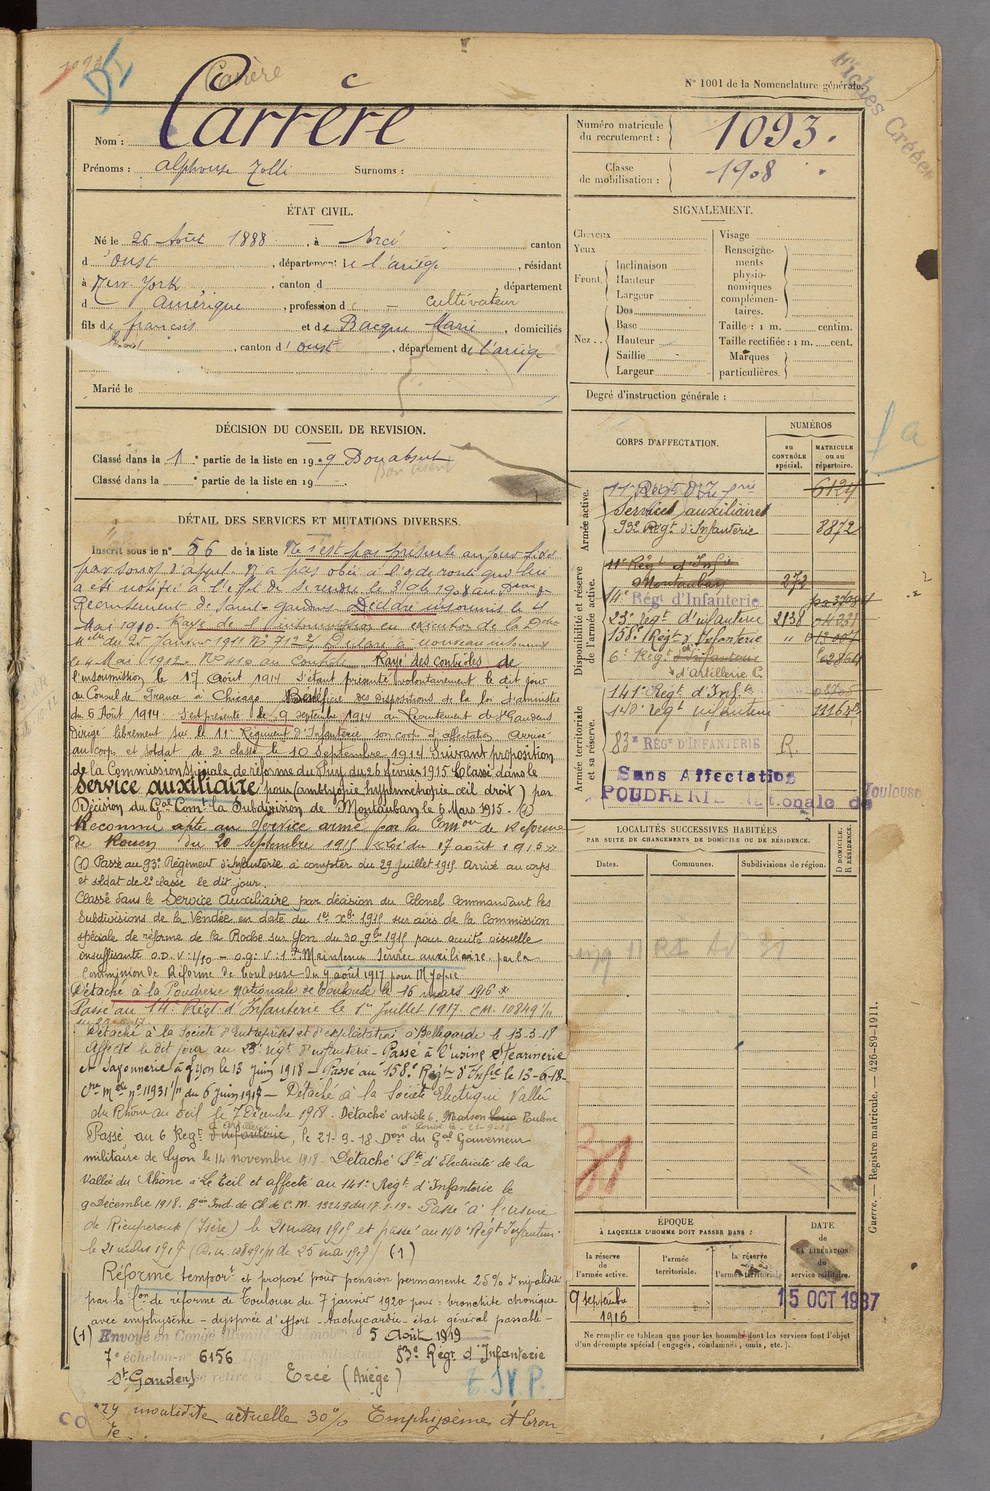 Carrère
N° 1001 de la Nomenclature générale.
Fiches Créées
Nom : Carrère
Prénoms : Alphonse Surnoms :
Numéro matricule du recrutement : 1093.
Classe de mobilisation : 1908
ÉTAT CIVIL.
Né le 26 Août 1888, à Ercé canton
d'Oust, département de l'ariège, résidant
à New York, canton d département
d amérique, profession de cultivateur
fils de francois et de Bacque Marie, domiciliés
, canton d'oust, département de l'ariège
Marié le
SIGNALEMENT.
Cheveux
Yeux
Front
Inclinaison
Hauteur
Largeur
Nez
Dos
Base
Hauteur
Saillie
Largeur
Visage
Renseignements physionomiques complémentaires.
Taille : 1 m. centim.
Taille rectifiée : 1 m. cent.
Marques particulières.
Degré d'instruction générale :
DÉCISION DU CONSEIL DE REVISION.
Classé dans la 1e partie de la liste en 1909 Bon absent
Classé dans la e partie de la liste en 19
DÉTAIL DES SERVICES ET MUTATIONS DIVERSES.
Inscrit sous le n° 56 de la liste Ne s'est pas présenté au jour fixé
par son ordre d'appel. N'a pas obéi à l'ordre de route qui lui
a été notifié à l'effet de se rendre le 3 9bre 1908 au
Recrutement de Saint-Gaudens Déclaré insoumis le 4
Mai 1910. Rayé de l'insoumission en exécution de la Don
Mlle du 25 Janvier 1911 N° 712 Déclaré à nouveau insoumis
le 4 Mai 1912. N° 410 au Contrôle Rayé des contrôles de
l'insoumission le 17 août 1914 s'étant présenté volontairement le dit jour
au Consul de France à Chicago. Bénéficie des dispositions de la loi d'amnistie
du 5 Août 1914. S'est présenté le 9 septembre 1914 au Recrutement de St Gaudens
Dirigé librement sur le 11e Régiment d'Infanterie son corps d'affectation Arrivé
au corps et soldat de 2e classe le 10 Septembre 1914 Suivant proposition
de la Commission Spéciale de réforme du Puy du 26 février 1915 Classé dans le
Service auxiliaire pour (amblyopie hypermétropie œil droit) par
Décision du Gal Comt la Subdivision de Montauban le 6 Mars 1915. (1)
Reconnu apte au Service armé par la Comon de Réforme
de Rouen du 20 septembre 1915 « Loi du 17 août 1915 »
(1) Passé au 93e Régiment d'Infanterie à compter du 29 juillet 1915. Arrivé au corps
et soldat de 2e classe le dit jour.
Classé dans le Service Auxiliaire par décision du Colonel Commandant les
Subdivisions de la Vendée en date du 1er Xbre 1915 sur avis de la Commission
spéciale de réforme de la Roche sur Yon du 30 9bre 1915 pour acuité visuelle
insuffisante O.D. V: 1/50 – O.G: V: 1 Maintenu Service auxiliaire par la
Commission de Réforme de Toulouse du 9 août 1917 pour Myopie.
Détaché à la Poudrerie Nationale de Toulouse le 16 mars 1916
Passé au 14e Régt d'Infanterie le 1er Juillet 1917. CM. 10849 1/11
Détaché à la Société d'Entreprises et d'exploitation à Bellegarde le 13-3-18
Affecté le dit jour au 23e régt d'infanterie – Passé à l'usine Stéarinerie
et Savonnerie à Lyon le 13 Juin 1918 – Passé au 158e Régt d'Infie le 13-6-18-
du 6 Juin 1917 – Détaché à la Société Electrique Vallée
du Rhône au Teil le 7 Décembre 1918. Détaché article 6. Maison
Passé au 6 Régt d'artillerie, le 21-9-18. Don du Gal Gouverneur
militaire de Lyon le 14 novembre 1918. Détaché Sté d'Electricité de la
Vallée du Rhône à Le Teil et affecté au 141e Régt d'Infanterie le
9 Décembre 1918. Passé à l'usine
de Rioupéroux (Isère) le 21 mars 1919 et passé au 140e Régt Infanterie
le 21 mars 1919 (1)
Réformé tempore et proposé pour pension permanente 25% d'invalidité
par la Con de réforme de Toulouse du 7 janvier 1920 pour : bronchite chronique
avec emphysème – dyspnée d'effort – tachycardie – état général passable –
(1) Envoyé en Congé illimité de démobon 5 Août 1919
7e échelon n° 6156 83e Régt d'Infanterie
St Gaudens se retire à Ercé (Ariège)
invalidité actuelle 30% Emphysème et bron-
CORPS D'AFFECTATION.
NUMÉROS
au CONTRÔLE spécial.
MATRICULE ou au répertoire.
Armée active.
Services auxiliaires 6124
93e Régt d'Infanterie 8872
Disponibilité et réserve de l'armée active.
11e Régt d'Infie
Montauban 272
14e Régt d'Infanterie
23e régt d'infanterie 2138
158e Régt d'Infanterie
6e Régt d'artillerie
Armée territoriale et sa réserve.
141e Régt d'Infie
140e régt infanterie
83e RÉGT D'INFANTERIE R.
Sans Affectation
POUDRERIE Nationale de Toulouse
LOCALITÉS SUCCESSIVES HABITÉES
PAR SUITE DE CHANGEMENTS DE DOMICILE OU DE RÉSIDENCE.
Dates.
Communes.
Subdivisions de région.
D. DOMICILE. R. RÉSIDENCE.
ÉPOQUE
À LAQUELLE L'HOMME DOIT PASSER DANS :
la réserve de l'armée active.
l'armée territoriale.
la réserve de l'armée territoriale
DATE de LA LIBÉRATION du service militaire.
9 septembre 1916
15 OCT 1937
Ne remplir ce tableau que pour les hommes dont les services font l'objet
d'un décompte spécial (engagés, condamnés, omis, etc.).
Guerre. — Registre matricule. — 426-89-1911.